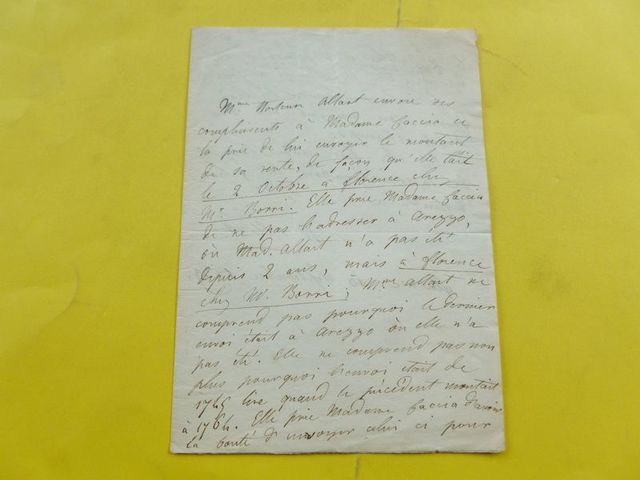 Mme Hortense Allart envoie ses
compliments à Madame Faccia et
la prie de lui envoyer le montant
de sa rente, de façon qu'elle l'ait
le 2 octobre à florence chez
Mr Borri. Elle prie Madame faccia
de ne pas l'adresser à Arezzo,
où Mad. Allart n'a pas été
depuis 2 ans, mais à florence
chez Mr Borri; Mme Allart ne
comprend pas pourquoi le dernier
envoi était à Arezzo où elle n'a
pas été. Elle ne comprend pas non
plus pourquoi l'envoi était de
1745 lire quand le précédent montait
à 1764. Elle prie Madame faccia d'avoir
la bonté d'envoyer celui ci pour